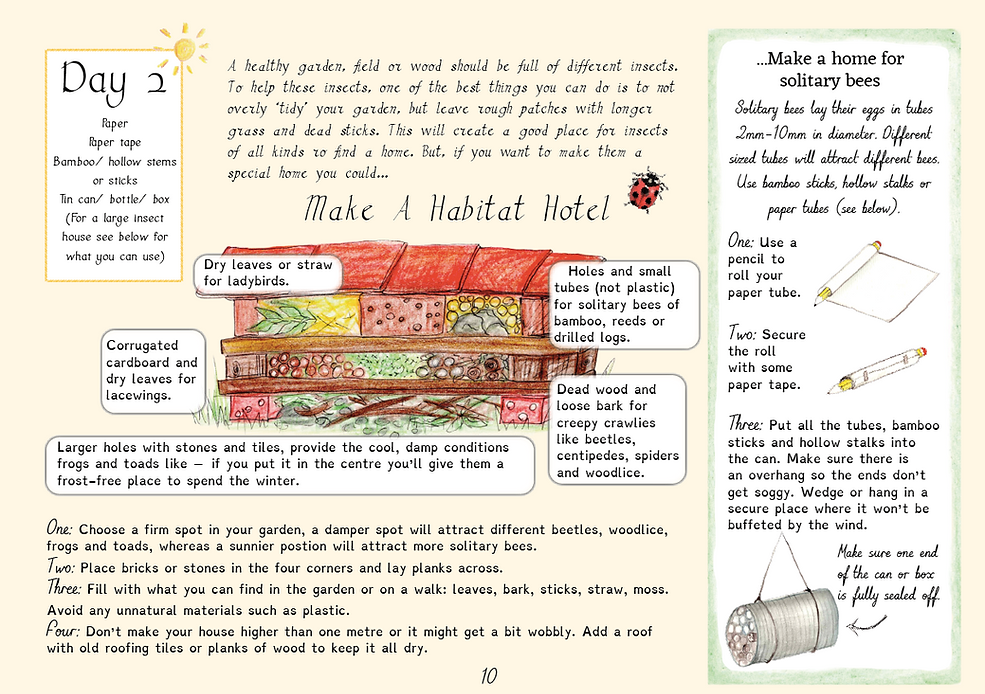 Day 2
Paper
Paper tape
Bamboo/ hollow stems
or sticks
Tin can/ bottle/ box
(For a large insect
house see below for
what you can use)
A healthy garden, field or wood should be full of different insects.
To help these insects, one of the best things you can do is to not
overly 'tidy' your garden, but leave rough patches with longer
grass and dead sticks. This will create a good place for insects
of all kinds to find a home. But, if you want to make them a
special home you could...
Make A Habitat Hotel
Dry leaves or straw
for ladybirds.
Holes and small
tubes (not plastic)
for solitary bees of
bamboo, reeds or
drilled logs.
Corrugated
cardboard and
dry leaves for
lacewings.
Dead wood and
loose bark for
creepy crawlies
like beetles,
centipedes, spiders
and woodlice.
Larger holes with stones and tiles, provide the cool, damp conditions
frogs and toads like – if you put it in the centre you'll give them a
frost-free place to spend the winter.
One: Choose a firm spot in your garden, a damper spot will attract different beetles, woodlice,
frogs and toads, whereas a sunnier postion will attract more solitary bees.
Two: Place bricks or stones in the four corners and lay planks across.
Three: Fill with what you can find in the garden or on a walk: leaves, bark, sticks, straw, moss.
Avoid any unnatural materials such as plastic.
Four: Don't make your house higher than one metre or it might get a bit wobbly. Add a roof
with old roofing tiles or planks of wood to keep it all dry.
10
...Make a home for
solitary bees
Solitary bees lay their eggs in tubes
2mm-10mm in diameter. Different
sized tubes will attract different bees.
Use bamboo sticks, hollow stalks or
paper tubes (see below).
One: Use a
pencil to
roll your
paper tube.
Two: Secure
the roll
with some
paper tape.
Three: Put all the tubes, bamboo
sticks and hollow stalks into
the can. Make sure there is
an overhang so the ends don't
get soggy. Wedge or hang in a
secure place where it won't be
buffeted by the wind.
Make sure one end
of the can or box
is fully sealed off.